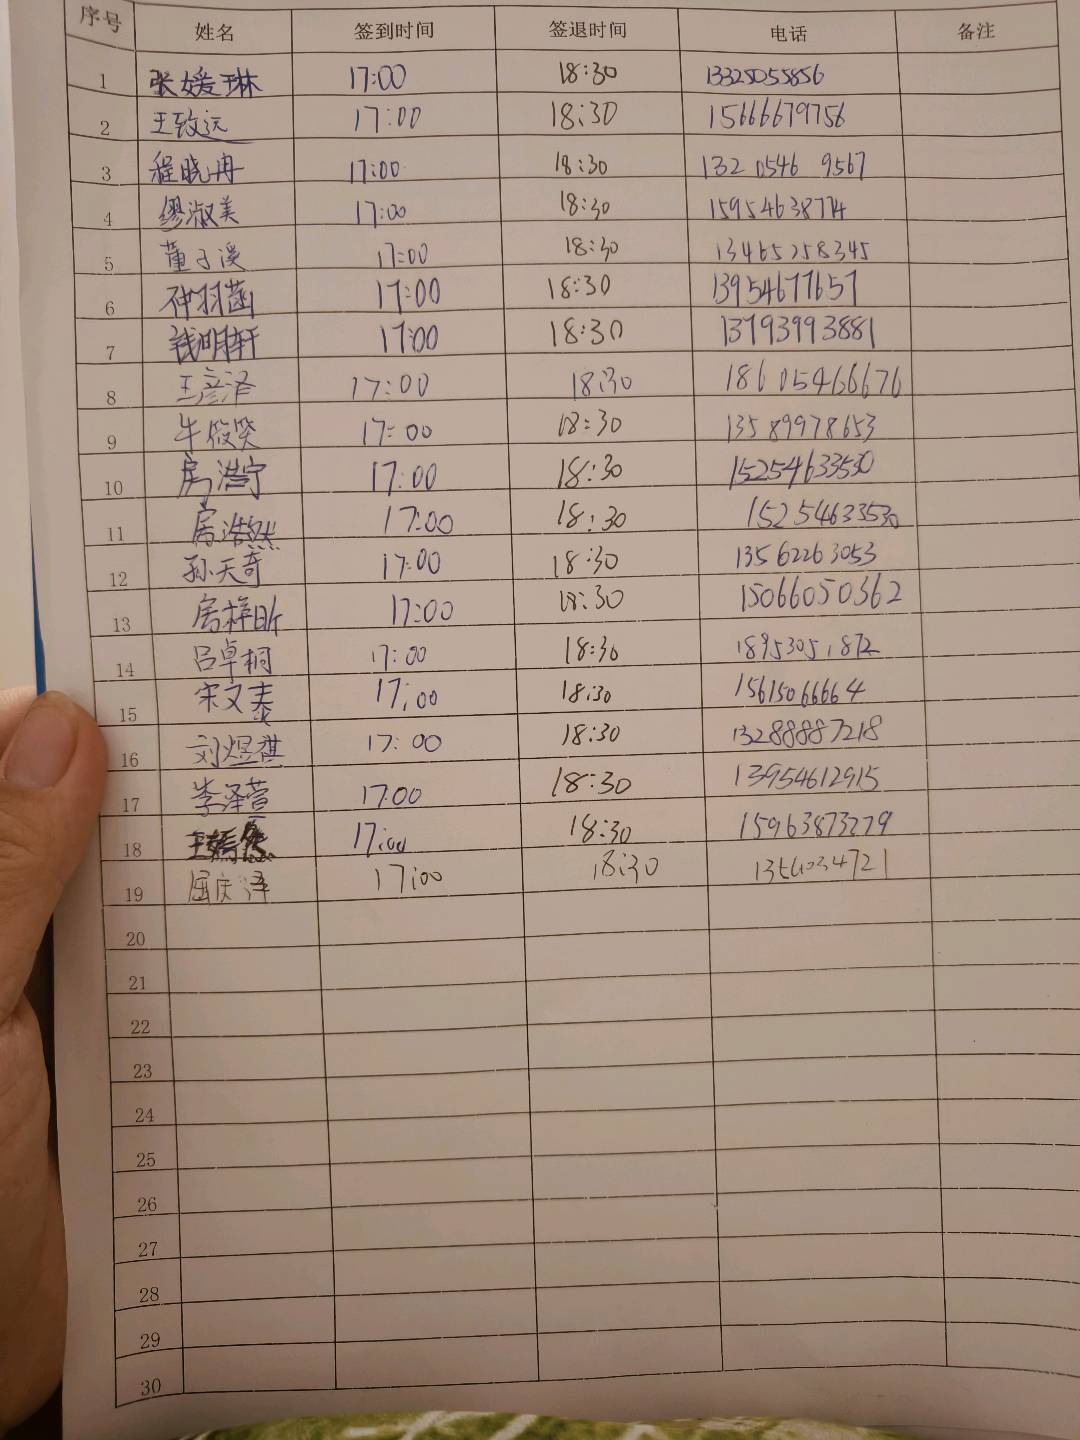 序号 姓名 签到时间 签退时间 电话 备注
1 张媛琳 17:00 18:30 13325055856
2 王致远 17:00 18:30 15666679756
3 程晓冉 17:00 18:30 132 0546 9567
4 缪淑美 17:00 18:30 15954638774
5 董子溪 17:00 18:30 13465258345
6 仲羽菡 17:00 18:30 13954677657
7 钱明轩 17:00 18:30 13793993881
8 王彦泽 17:00 18:30 18605466676
9 牛筱笑 17:00 18:30 13589978653
10 房浩宁 17:00 18:30 15254633530
11 房浩然 17:00 18:30 15254633530
12 孙天奇 17:00 18:30 13562263053
13 房梓昕 17:00 18:30 15066050362
14 吕卓桐 17:00 18:30 18953051872
15 宋文泰 17:00 18:30 15615066664
16 刘煜祺 17:00 18:30 13288887218
17 李泽萱 17:00 18:30 13954612915
18 17:00 18:30 15963873279
19 屈庆泽 17:00 18:30
20
21
22
23
24
25
26
27
28
29
30